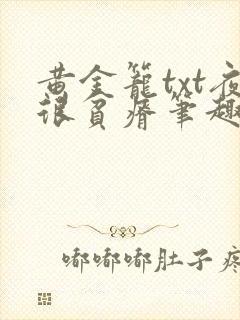 黄金笼txt夜
很贫瘠笔趣
嘟嘟嘟肚子疼